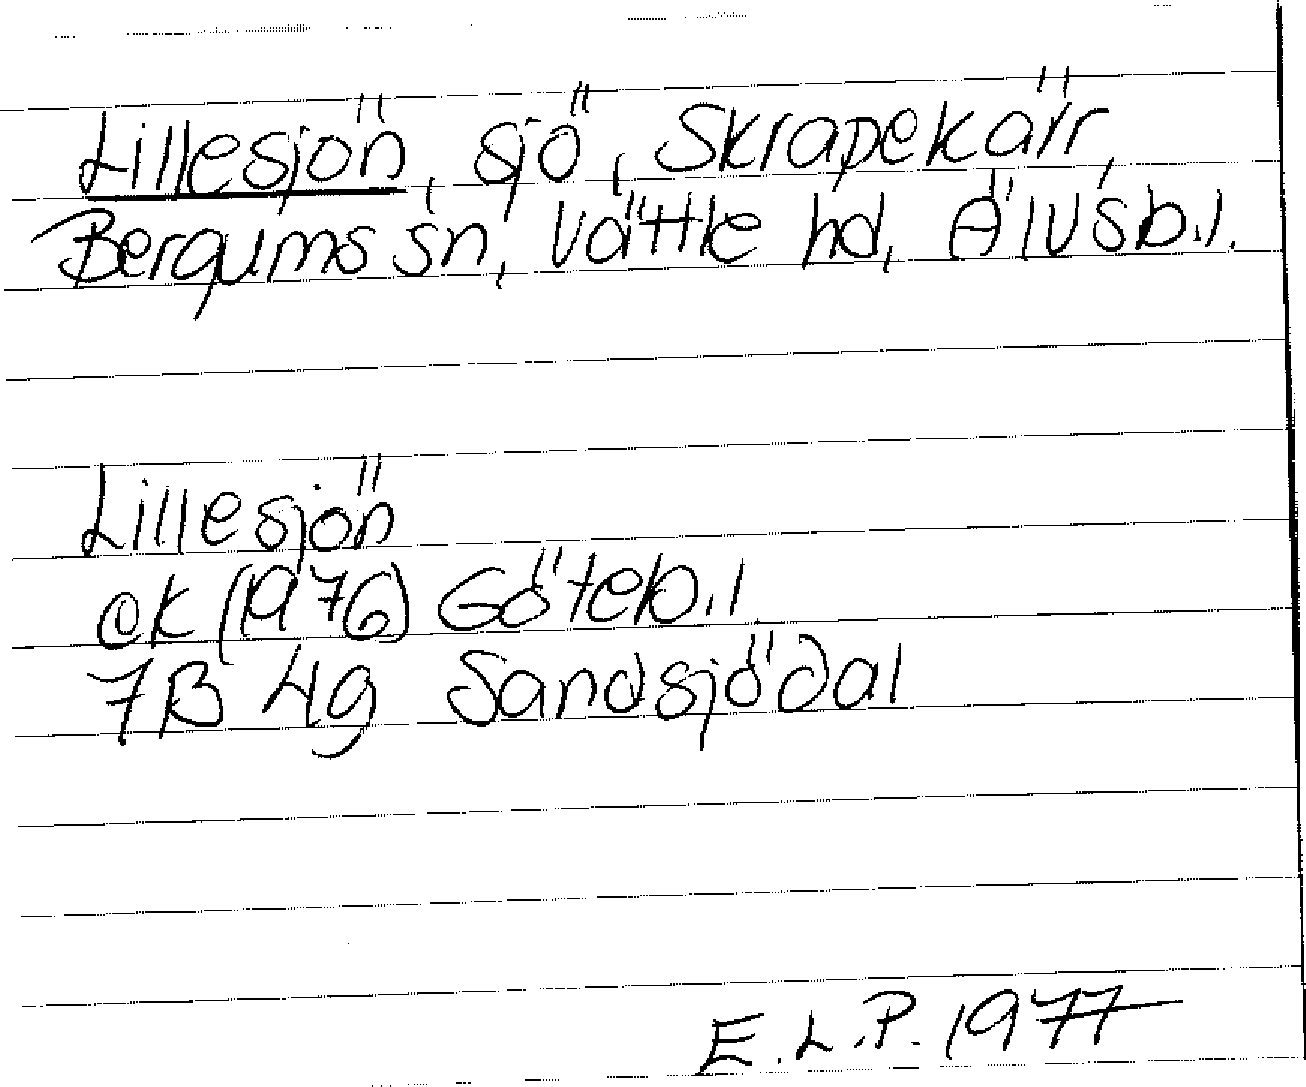 Lillesjön, sjö, Skrapekärr,
Bergums sn, Vättle hd, Älvsb.l.
Lillesjön
ek (1976) Göteb.l
7B 4g Sandsjödal
E.L.P. 1977